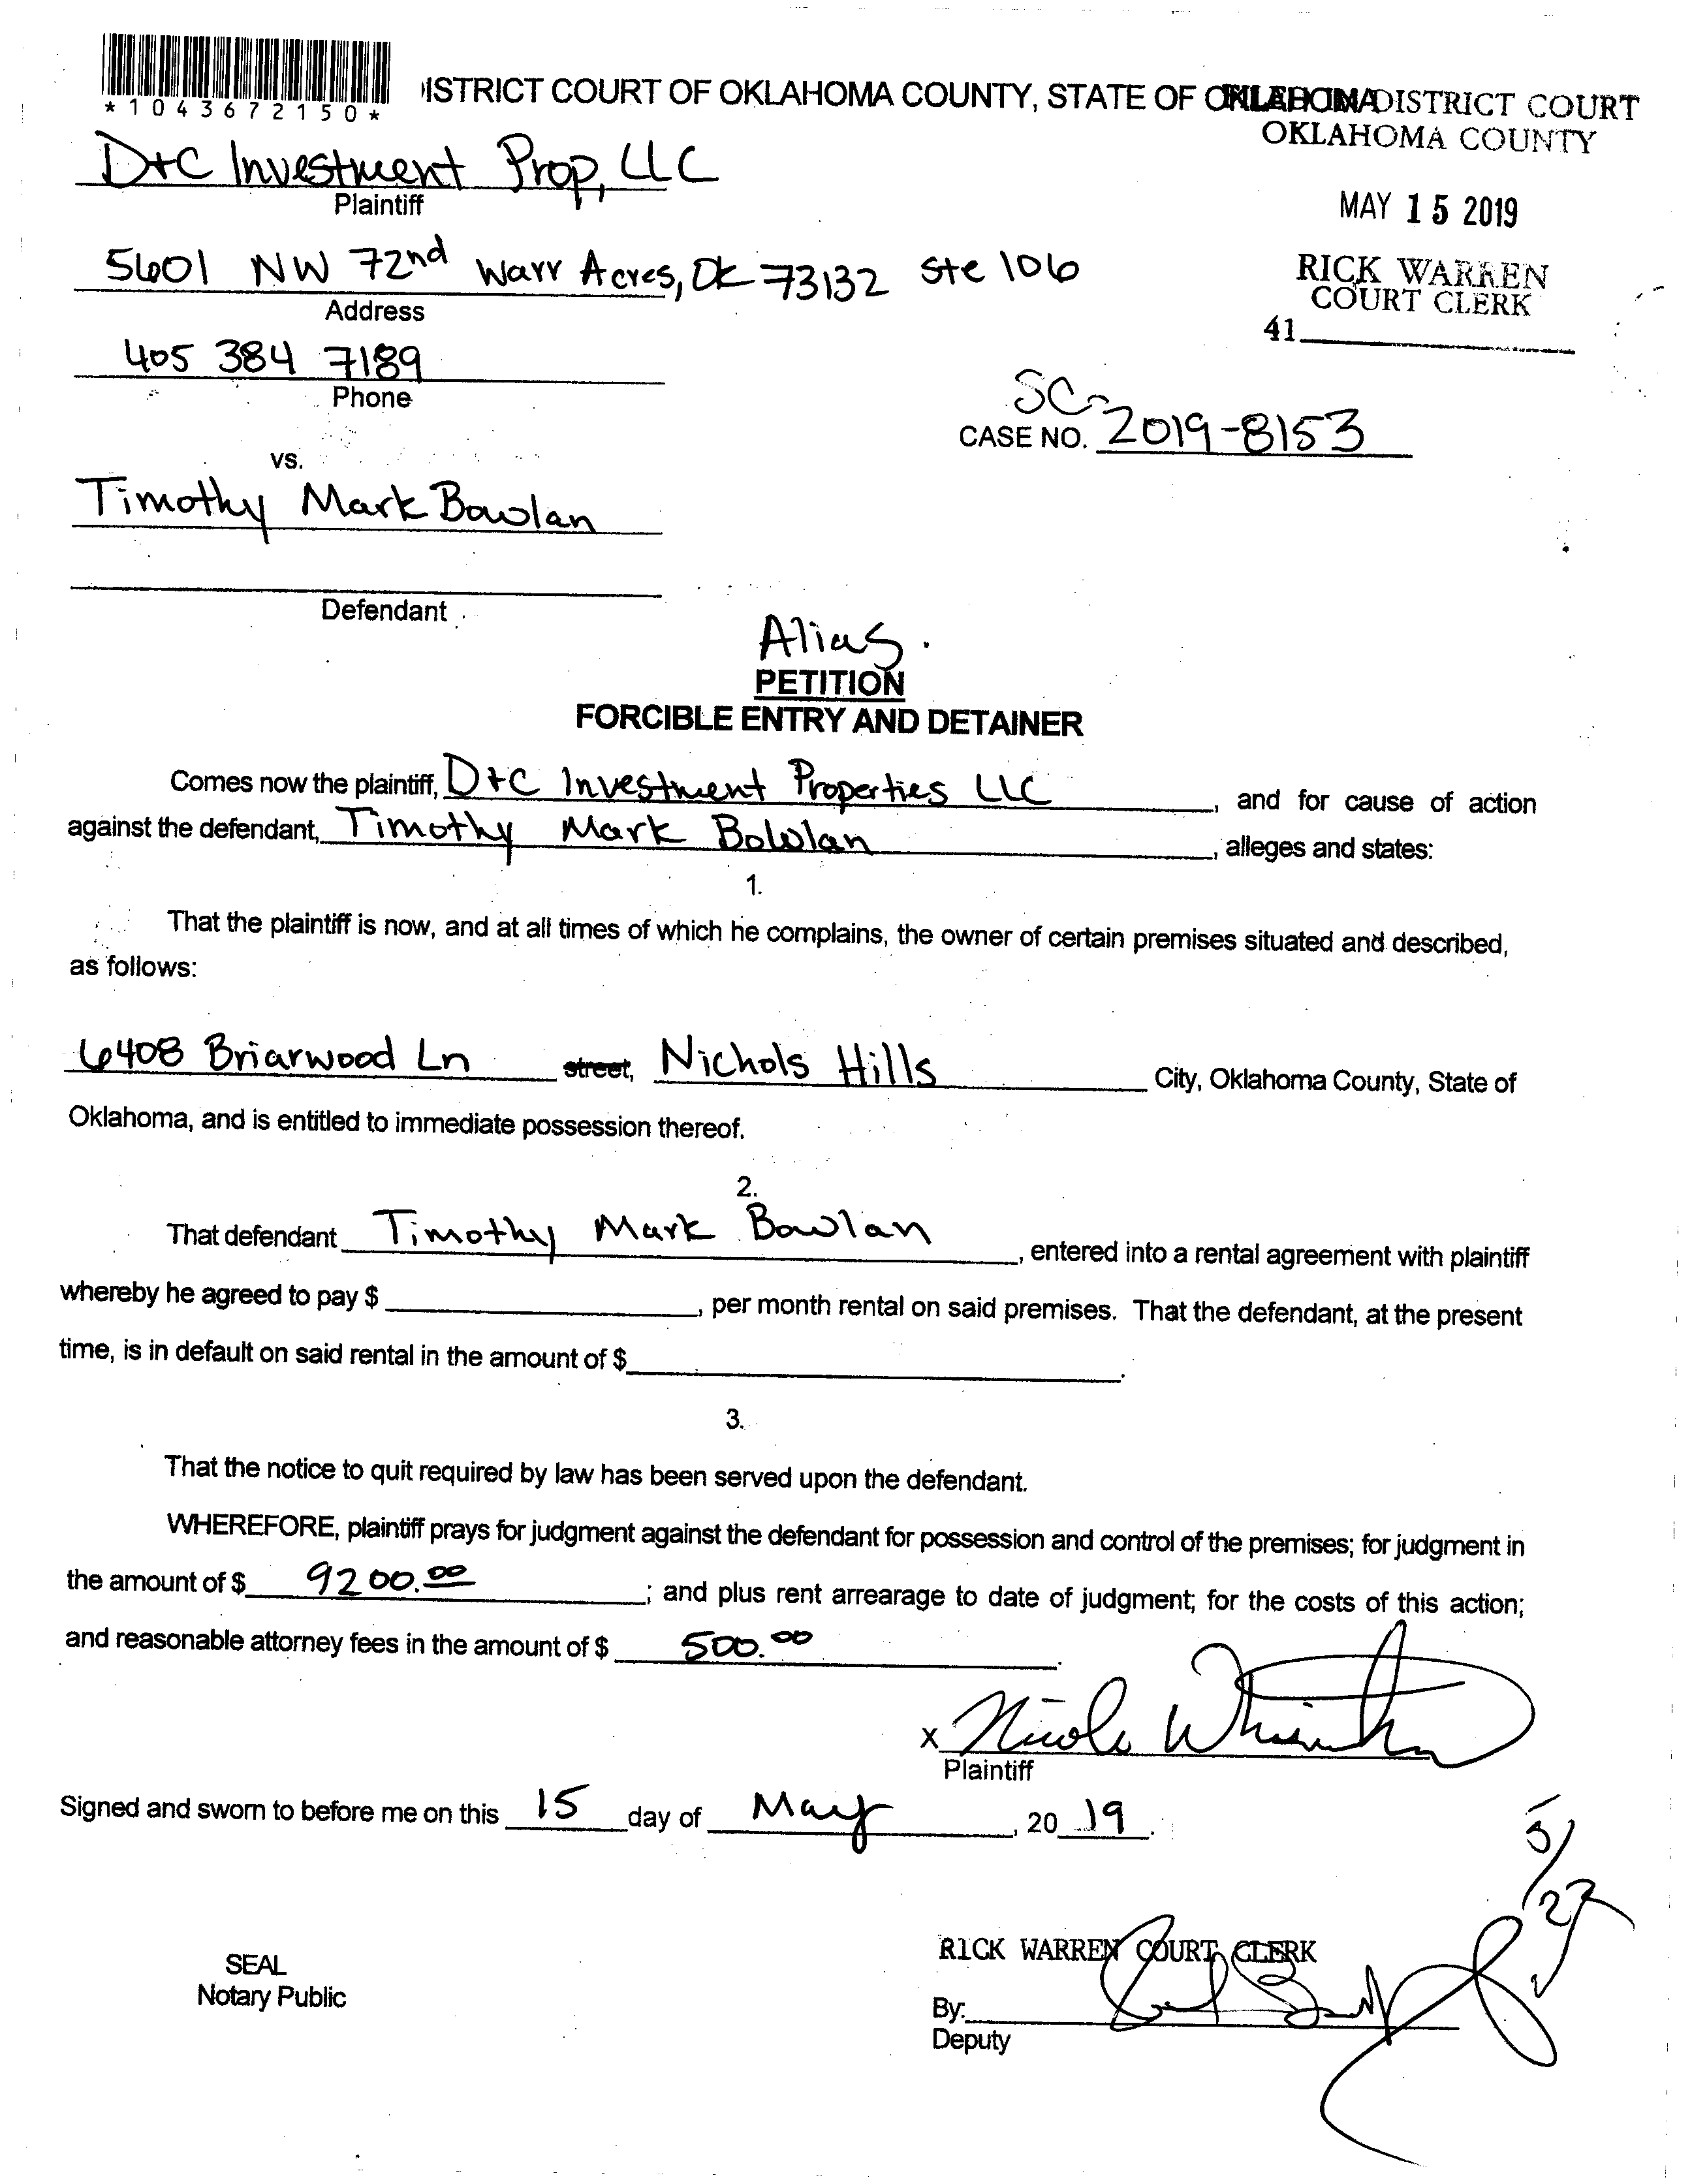 *1043672150*
ISTRICT COURT OF OKLAHOMA COUNTY, STATE OF OKLAHOMA
FILED IN DISTRICT COURT
OKLAHOMA COUNTY
D+C Investment Prop, LLC
Plaintiff
MAY 15 2019
5601 NW 72nd Warr Acres, OK 73132 Ste 106
Address
RICK WARREN
COURT CLERK
41
405 384 7189
Phone
SC-
CASE NO. 2019-8153
vs.
Timothy Mark Bowlan
Defendant
Alias
PETITION
FORCIBLE ENTRY AND DETAINER
Comes now the plaintiff, D+C Investment Properties LLC, and for cause of action
against the defendant, Timothy Mark Bowlan, alleges and states:
1.
That the plaintiff is now, and at all times of which he complains, the owner of certain premises situated and described,
as follows:
6408 Briarwood Ln street, Nichols Hills City, Oklahoma County, State of
Oklahoma, and is entitled to immediate possession thereof.
2.
That defendant Timothy Mark Bowlan, entered into a rental agreement with plaintiff
whereby he agreed to pay $, per month rental on said premises. That the defendant, at the present
time, is in default on said rental in the amount of $.
3.
That the notice to quit required by law has been served upon the defendant.
WHEREFORE, plaintiff prays for judgment against the defendant for possession and control of the premises; for judgment in
the amount of $ 9200.00; and plus rent arrearage to date of judgment; for the costs of this action;
and reasonable attorney fees in the amount of $ 500.00.
x Nicole
Plaintiff
Signed and sworn to before me on this 15 day of May, 2019.
5/27
RICK WARREN COURT CLERK
SEAL
Notary Public
By:
Deputy